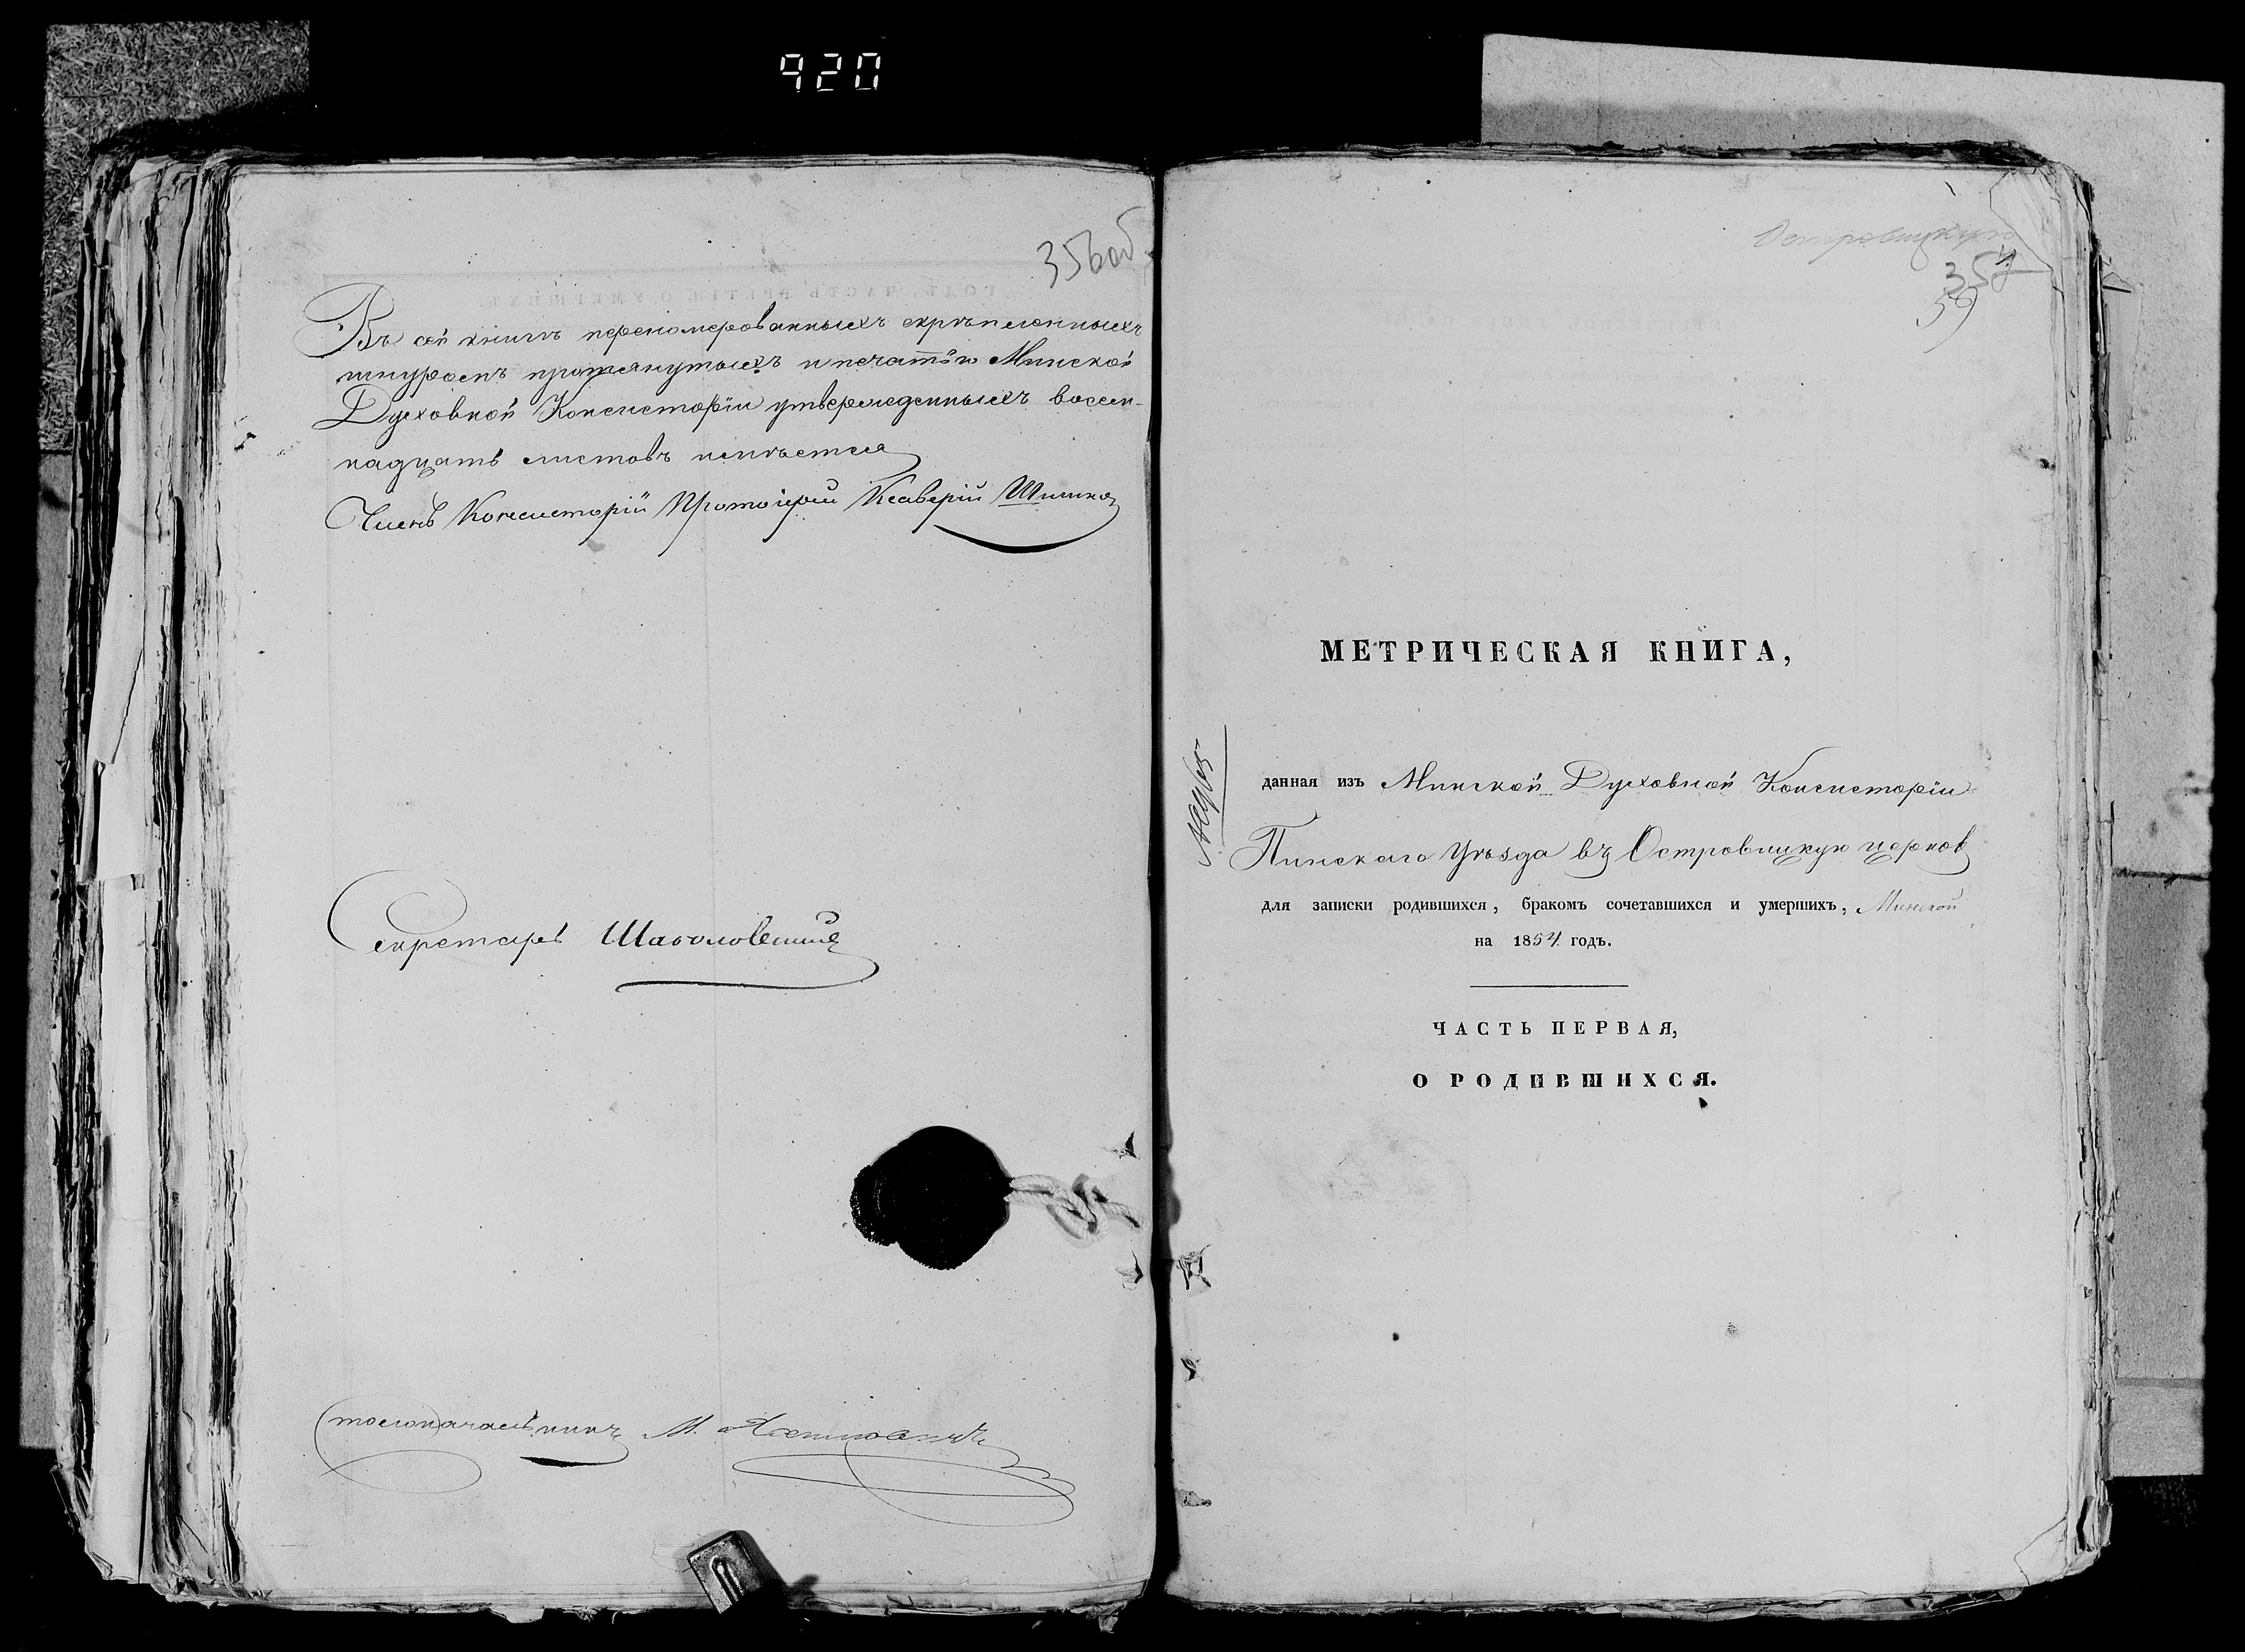 920
356об
Въ сей книгѣ перенумерованныхъ скрѣпленныхъ
шнуромъ протянутыхъ и печатію Минской
Духовной Консисторіи утвержденныхъ восем-
надцать листовъ имѣется
Членъ Консисторіи Протоіерей Ксаверій
Секретарь
Столоначальникъ М.
Островицкую
357
59
МЕТРИЧЕСКАЯ КНИГА,
данная изъ Минской Духовной Консисторіи
Пинскаго Уѣзда въ Островицкую церковь
для записки родившихся, бракомъ сочетавшихся и умершихъ, Минской
на 1854 годъ.
ЧАСТЬ ПЕРВАЯ,
О РОДИВШИХСЯ.